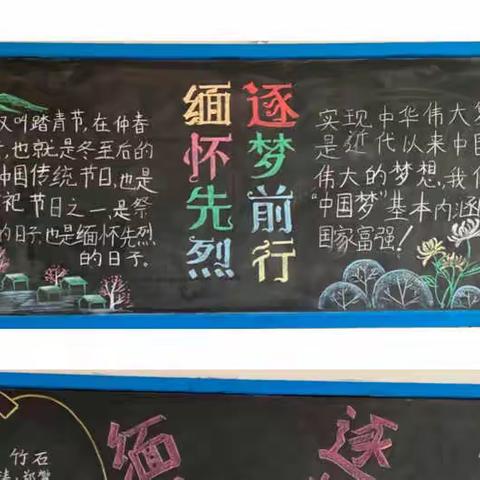 又叫踏青节,在仲春
也就是冬至后的
中国传统节日,也是
祀节日之一,是祭
的日子,也是缅怀先烈
的日子。
缅怀先烈
逐梦前行
实现中华伟大
是近代以来中国
伟大的梦想,我
“中国梦”基本内涵
国家富强!
缅
逐
竹石